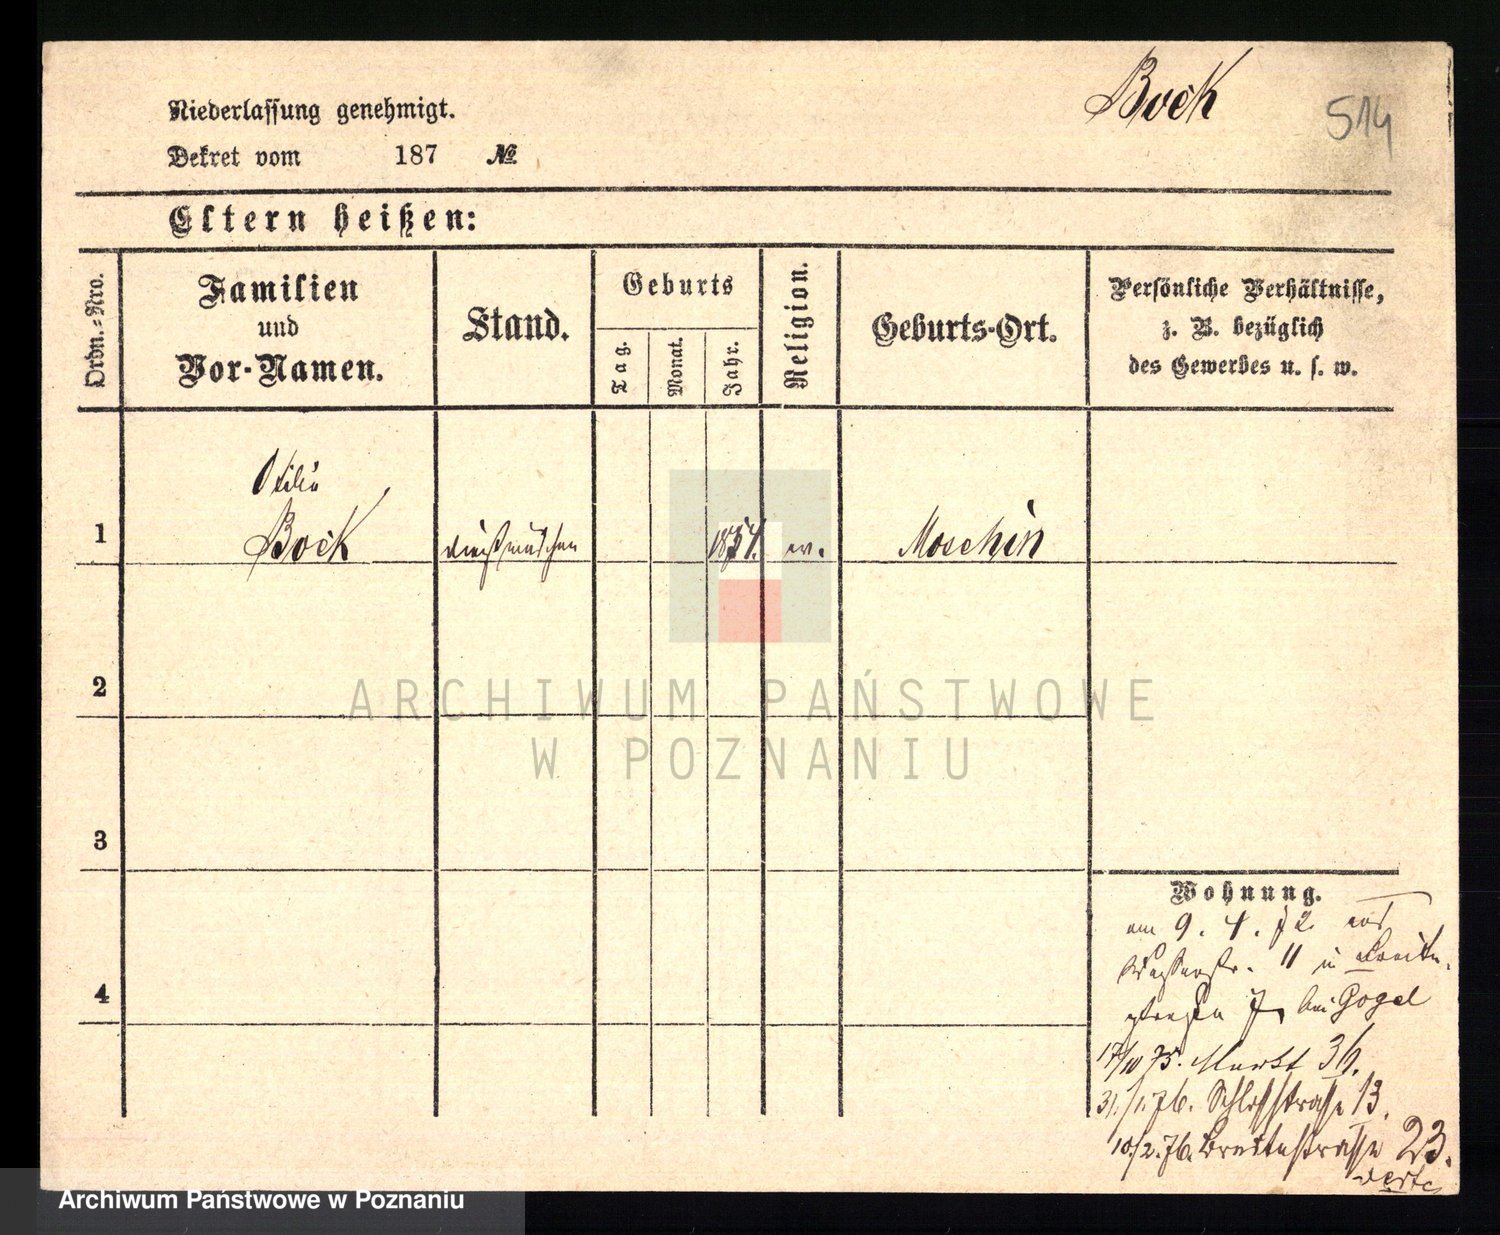 Bock
514
Niederlassung genehmigt.
Dekret vom 187 №
Eltern heißen:
Ordn.-Nro.
Familien
und
Vor-Namen.
Stand.
Geburts
Tag.
Monat.
Jahr.
Religion.
Geburts-Ort.
Persönliche Verhältnisse,
z. B. bezüglich
des Gewerbes u. s. w.
1
Otilie
Bock
1854.
ev.
Moschin
2
3
4
ARCHIWUM PAŃSTWOWE
W POZNANIU
Wohnung.
am 9. 4. 72 aus
11 in Breite
straße bei Gogel
17/10 75. Markt 36.
31./1. 76. Schloßstraße 13.
10./2. 76. Breitestrasse 23.
Archiwum Państwowe w Poznaniu